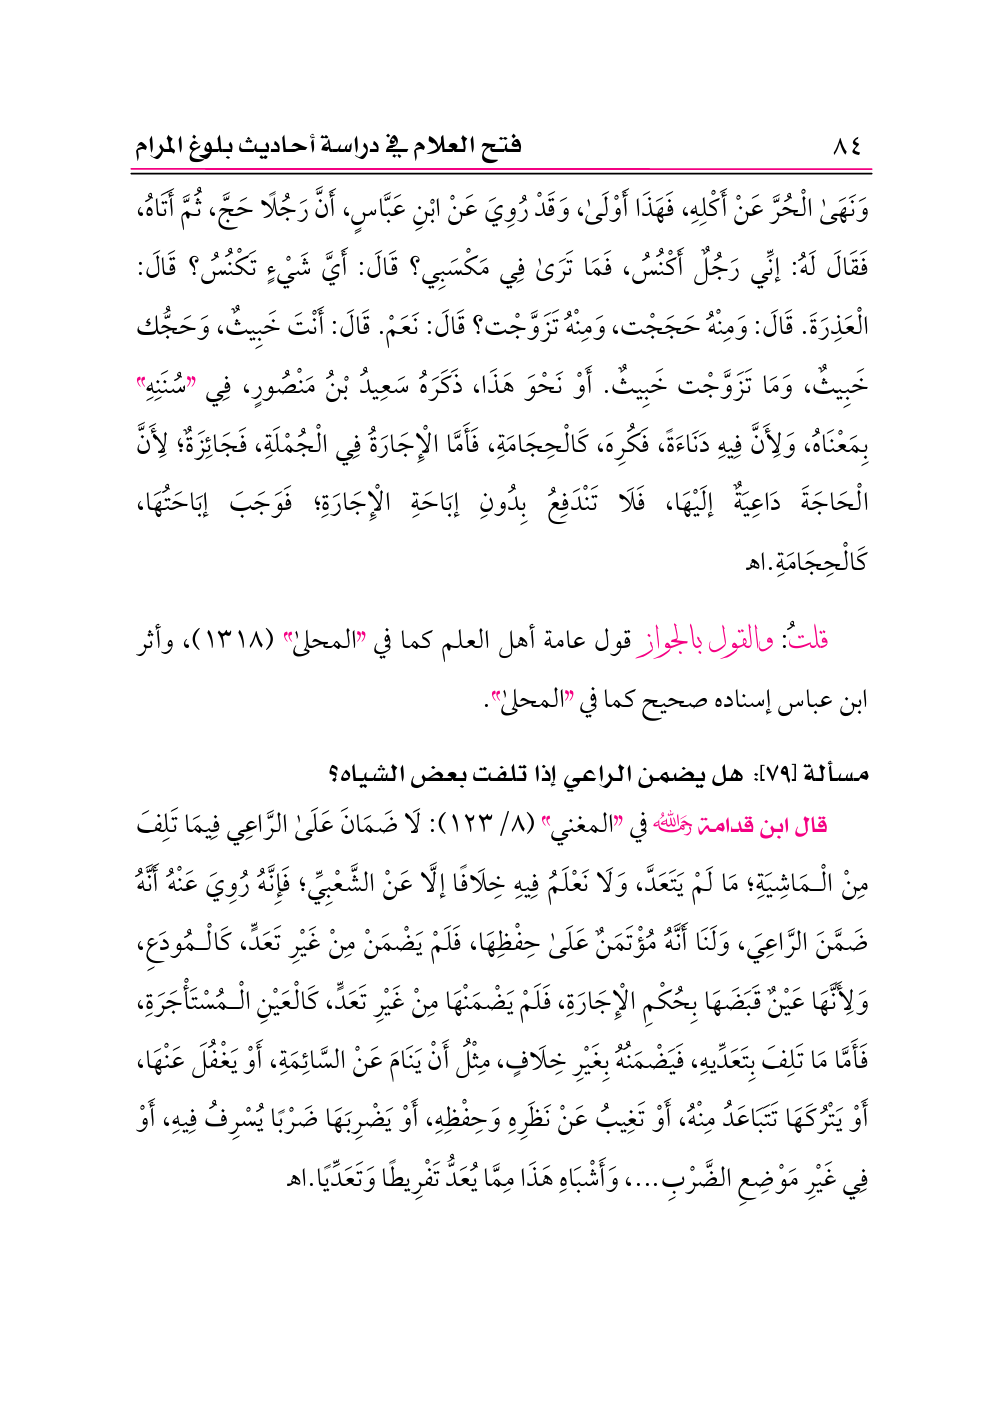 ٨٤ فتح العلام في دراسة أحاديث بلوغ المرام
وَنَهَىٰ الْحُرَّ عَنْ أَكْلِهِ، فَهَذَا أَوْلَىٰ، وَقَدْ رُوِيَ عَنْ ابْنِ عَبَّاسٍ، أَنَّ رَجُلًا حَجَّ، ثُمَّ أَتَاهُ،
فَقَالَ لَهُ: إنِّي رَجُلٌ أَكْنُسُ، فَمَا تَرَىٰ فِي مَكْسَبِي؟ قَالَ: أَيَّ شَيْءٍ تَكْنُسُ؟ قَالَ:
الْعَذِرَةَ. قَالَ: وَمِنْهُ حَجَجْت، وَمِنْهُ تَزَوَّجْت؟ قَالَ: نَعَمْ. قَالَ: أَنْتَ خَبِيثٌ، وَحَجُّك
خَبِيثٌ، وَمَا تَزَوَّجْت خَبِيثٌ. أَوْ نَحْوَ هَذَا، ذَكَرَهُ سَعِيدُ بْنُ مَنْصُورٍ، فِي "سُنَنِهِ"
بِمَعْنَاهُ، وَلِأَنَّ فِيهِ دَنَاءَةً، فَكُرِهَ، كَالْحِجَامَةِ، فَأَمَّا الْإِجَارَةُ فِي الْجُمْلَةِ، فَجَائِزَةٌ؛ لِأَنَّ
الْحَاجَةَ دَاعِيَةٌ إلَيْهَا، فَلَا تَنْدَفِعُ بِدُونِ إبَاحَةِ الْإِجَارَةِ؛ فَوَجَبَ إبَاحَتُهَا،
كَالْحِجَامَةِ.اهـ
قلتُ: والقول بالجواز قول عامة أهل العلم كما في "المحلىٰ" (١٣١٨)، وأثر
ابن عباس إسناده صحيح كما في "المحلىٰ".
مسألة [٧٩]: هل يضمن الراعي إذا تلفت بعض الشياه؟
قال ابن قدامة رحمه الله في "المغني" (٨/ ١٢٣): لَا ضَمَانَ عَلَىٰ الرَّاعِي فِيمَا تَلِفَ
مِنْ الْـمَاشِيَةِ؛ مَا لَمْ يَتَعَدَّ، وَلَا نَعْلَمُ فِيهِ خِلَافًا إلَّا عَنْ الشَّعْبِيِّ؛ فَإِنَّهُ رُوِيَ عَنْهُ أَنَّهُ
ضَمَّنَ الرَّاعِيَ، وَلَنَا أَنَّهُ مُؤْتَمَنٌ عَلَىٰ حِفْظِهَا، فَلَمْ يَضْمَنْ مِنْ غَيْرِ تَعَدٍّ، كَالْـمُودَعِ،
وَلِأَنَّهَا عَيْنٌ قَبَضَهَا بِحُكْمِ الْإِجَارَةِ، فَلَمْ يَضْمَنْهَا مِنْ غَيْرِ تَعَدٍّ، كَالْعَيْنِ الْـمُسْتَأْجَرَةِ،
فَأَمَّا مَا تَلِفَ بِتَعَدِّيهِ، فَيَضْمَنُهُ بِغَيْرِ خِلَافٍ، مِثْلُ أَنْ يَنَامَ عَنْ السَّائِمَةِ، أَوْ يَغْفُلَ عَنْهَا،
أَوْ يَتْرُكَهَا تَتَبَاعَدُ مِنْهُ، أَوْ تَغِيبُ عَنْ نَظَرِهِ وَحِفْظِهِ، أَوْ يَضْرِبَهَا ضَرْبًا يُسْرِفُ فِيهِ، أَوْ
فِي غَيْرِ مَوْضِعِ الضَّرْبِ...، وَأَشْبَاهِ هَذَا مِمَّا يُعَدُّ تَفْرِيطًا وَتَعَدِّيًا.اهـ